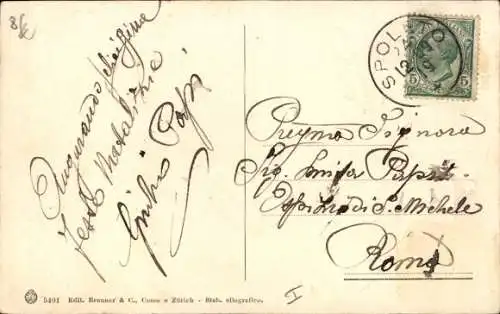 Augurando felicissime
feste Natalizie
Giulia Papi
SPOLETO
5
Pregma Signora
Sig. Luisa
Ospizio di S. Michele
Roma
5401 Edit. Brunner & C., Como e Zürich - Stab. eliografico.